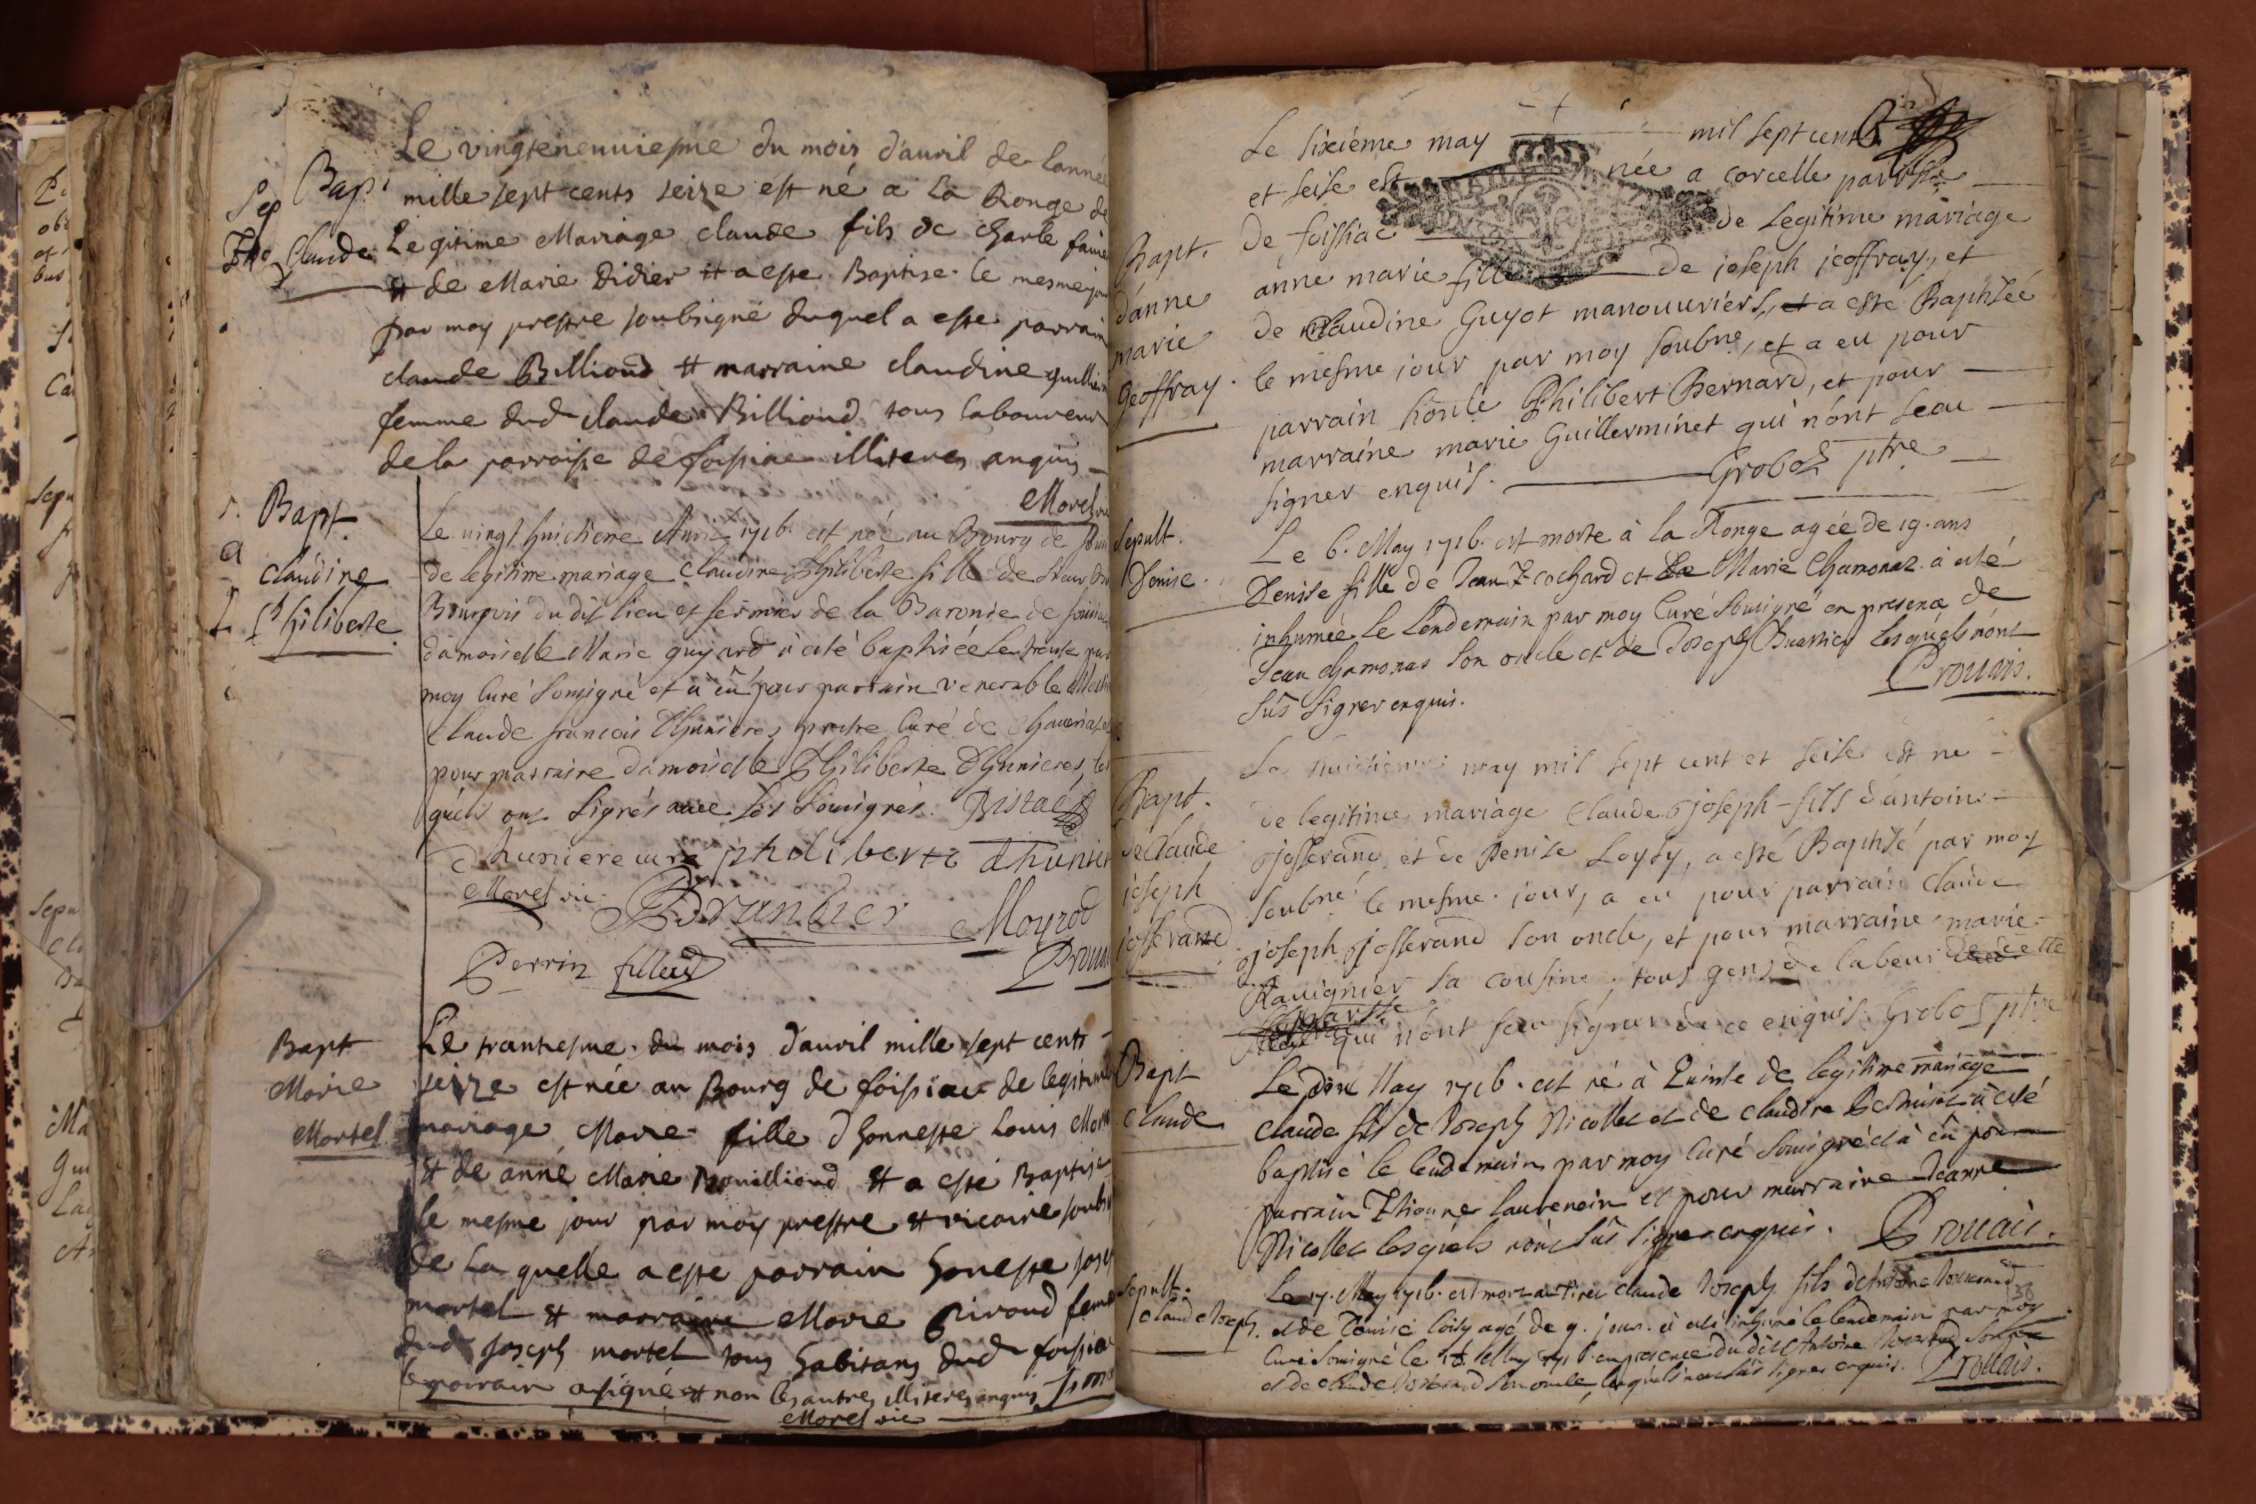 Bapt
Claude
Le vingteneuuiesme du mois d'auril de lanné
mille sept cents seize est né a La Ronge de
Legitime Mariage claude fils de charle faine
et de Marie Didier et a este Baptise le mesme jou
par moy prestre soubsigné duquel a este parrain
claude Billioud et marraine claudine guillie
femme dud claude Billioud tous laboureur
de la parroisse de foissiac illiteres anquis
Morel vic
Bapt.
claudine
Philiberte
Le uingt huictieme Auril 1716 est née au Bourg de foissi
de legitime mariage claudine Philiberte fille de
Bourgois du dit lieu et fermier de la Baronie de foissiac
damoiselle Marie guyard à eté baptisée le trente par
moy Curé Sousigné et à eû pour parrain venerable
Claude francois Dhunieres pretre Curé de
pour marraine damoiselle Philiberte Dhunieres les
quels ont Signés auec les Sousignés.
Dhuniere cure philiberte dhunier
Morel vic
Perrin filleud
Bapt
Marie
Mortel
Le trantiesme du mois d'auril mille sept cents
seize est née au Bourg de foissiac de legitime
mariage Marie fille d'honneste Louis Mor
et de anne Marie Bouillioud et a esté Baptise
le mesme jour par moy prestre et vicaire soubs
de La quelle a este parrain honeste jose
mortel et marraine Marie Piroud feme
dud joseph mortel tous habitans dud foissiac
le parrain a signé et non les autres illiteres anquis
Morel vic
Bapt.
d'anne
marie
Geoffray.
Le sixiéme may mil sept cent
et seise est née a corcelle parr
de foissiac de Legitime mariage
anne marie fille de joseph jeoffray, et
de Claudine Guyot manouuriers, et a esté Baptisée
le mesme jour par moy soubné, et a eu pour
parrain honle Philibert Bernard, et pour
marraine marie Guillerminet qui n'ont seau
signer enquis. Grobos ptre
Sepult.
Denise.
Le 6. May 1716. est morte à la Ronge agée de 19. ans
Denise fille de Jean F. cochard et de Marie Chamonar à eté
inhumée le Lendemain par moy Curé Sousigné en presence de
Jean chamonar Son oncle et de Joseph lesquels nont
Sûs Signer enquis. Prouais.
Bapt.
de Claude
joseph
josserand
Le huictieme may mil sept cent et seise est né
de legitime mariage Claude joseph fils d'antoine
josserand et de Denise Loysy, a esté Baptisé par moy
soubné le mesme jour, a eu pour parrain claude
joseph josserand son oncle, et pour marraine marie
Rauignier sa cousine tous gens de labeur de cette
parsse qui n'ont seau signer de ce enquis. Grobos ptre
Bapt
claude
Le May 1716. est né à de legitime mariage
Claude fils de Joseph Nicollet et de claudine à eté
baptisé le lendemain par moy Curé Sousigné et à eû pour
parrain Thiouner laurencin et pour marraine Jeanne
Nicollet lesquels nont Sûs Signer enquis. Prouais.
Sepult.
Claude Joseph.
Le 17. May 1716. est mort claude Joseph fils d'Antoine Josserand
et de Denise Loisy agé de 9. jours. à eté inhumé le lendemain par moy
Curé Sousigné le 18 May 1716 en presence du dit Antoine Josserand Son pere
et de claude Josserand Son oncle, lesquels nont Sûs Signer enquis. Prouais.